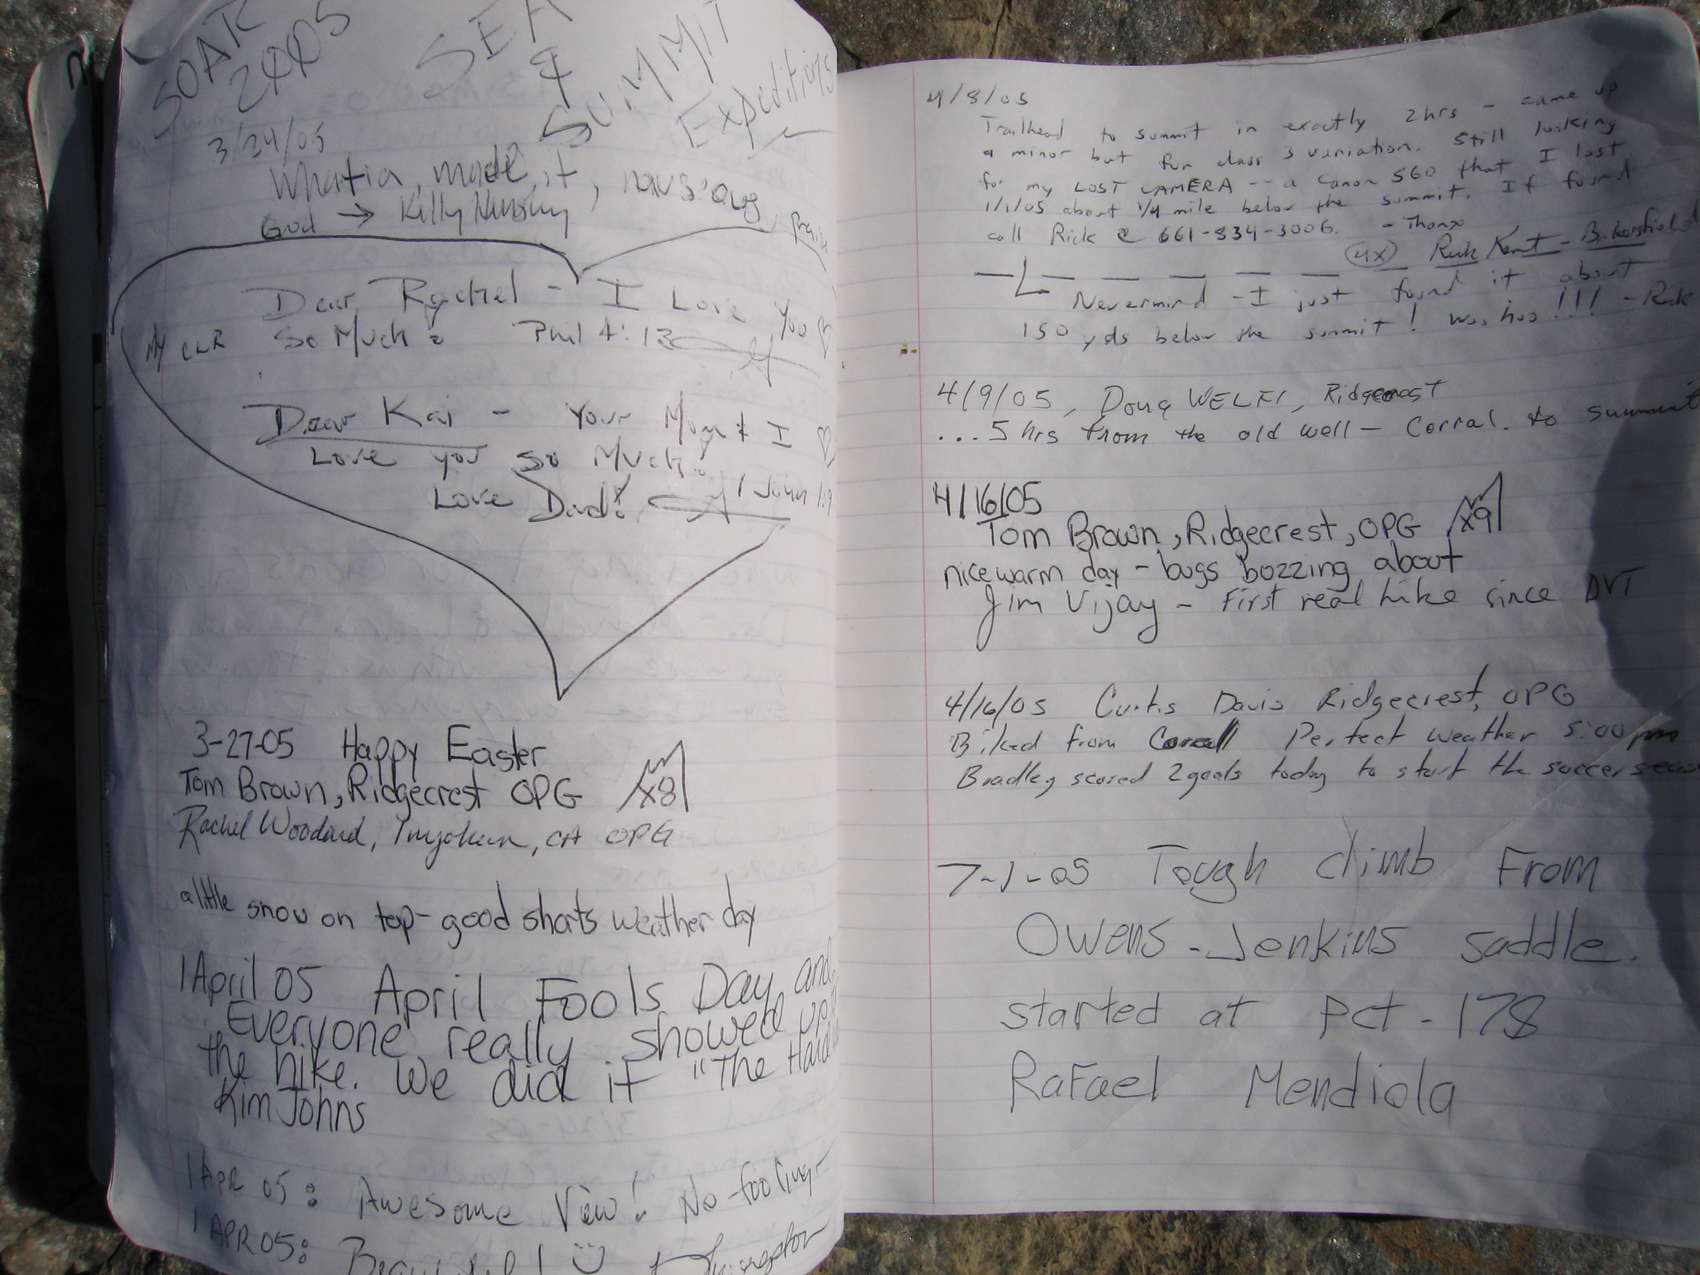 SOAR
2005
SEA
&
SUMMIT
Expeditions
3/24/05
made it,
God → Kelly
Praise
Dear Rachel - I Love You
So Much. Phil 4:13
Dear Kai - Your Mom & I
Love you So Much.
Love Dad! 1 John 1:9
3-27-05 Happy Easter
Tom Brown, Ridgecrest OPG x8
Rachel Woodard, Inyokern, CA OPG
a little snow on top - good shorts weather day
1 April 05 April Fools Day and
Everyone really showed up
the hike. We did it "The Hard
Kim Johns
1 APR 05: Awesome View! No fooling -
1 APR 05: Beautiful!
4/8/05
Trailhead to summit in exactly 2 hrs - came up
a minor but fun class 3 variation. Still looking
for my LOST CAMERA -- a Canon S60 that I lost
1/1/05 about 1/4 mile below the summit. If found
call Rick @ 661-834-3006. - Thanx
(4x) Rick Kent - Bakersfield
Nevermind - I just found it about
150 yds below the summit! Woo hoo!!! - Rick
4/9/05, Doug WELFI, Ridgecrest
...5 hrs from the old well - Corral to summit
4/16/05
Tom Brown, Ridgecrest, OPG x9
nice warm day - bugs bozzing about
Jim Vijay - First real hike since DVT
4/16/05 Curtis Davis Ridgecrest, OPG
Biked from Corral Perfect weather 5:00 pm
Bradley scored 2 goals today to start the soccer season
7-1-05 Tough climb From
Owens-Jenkins saddle.
started at Pct-178
Rafael Mendiola